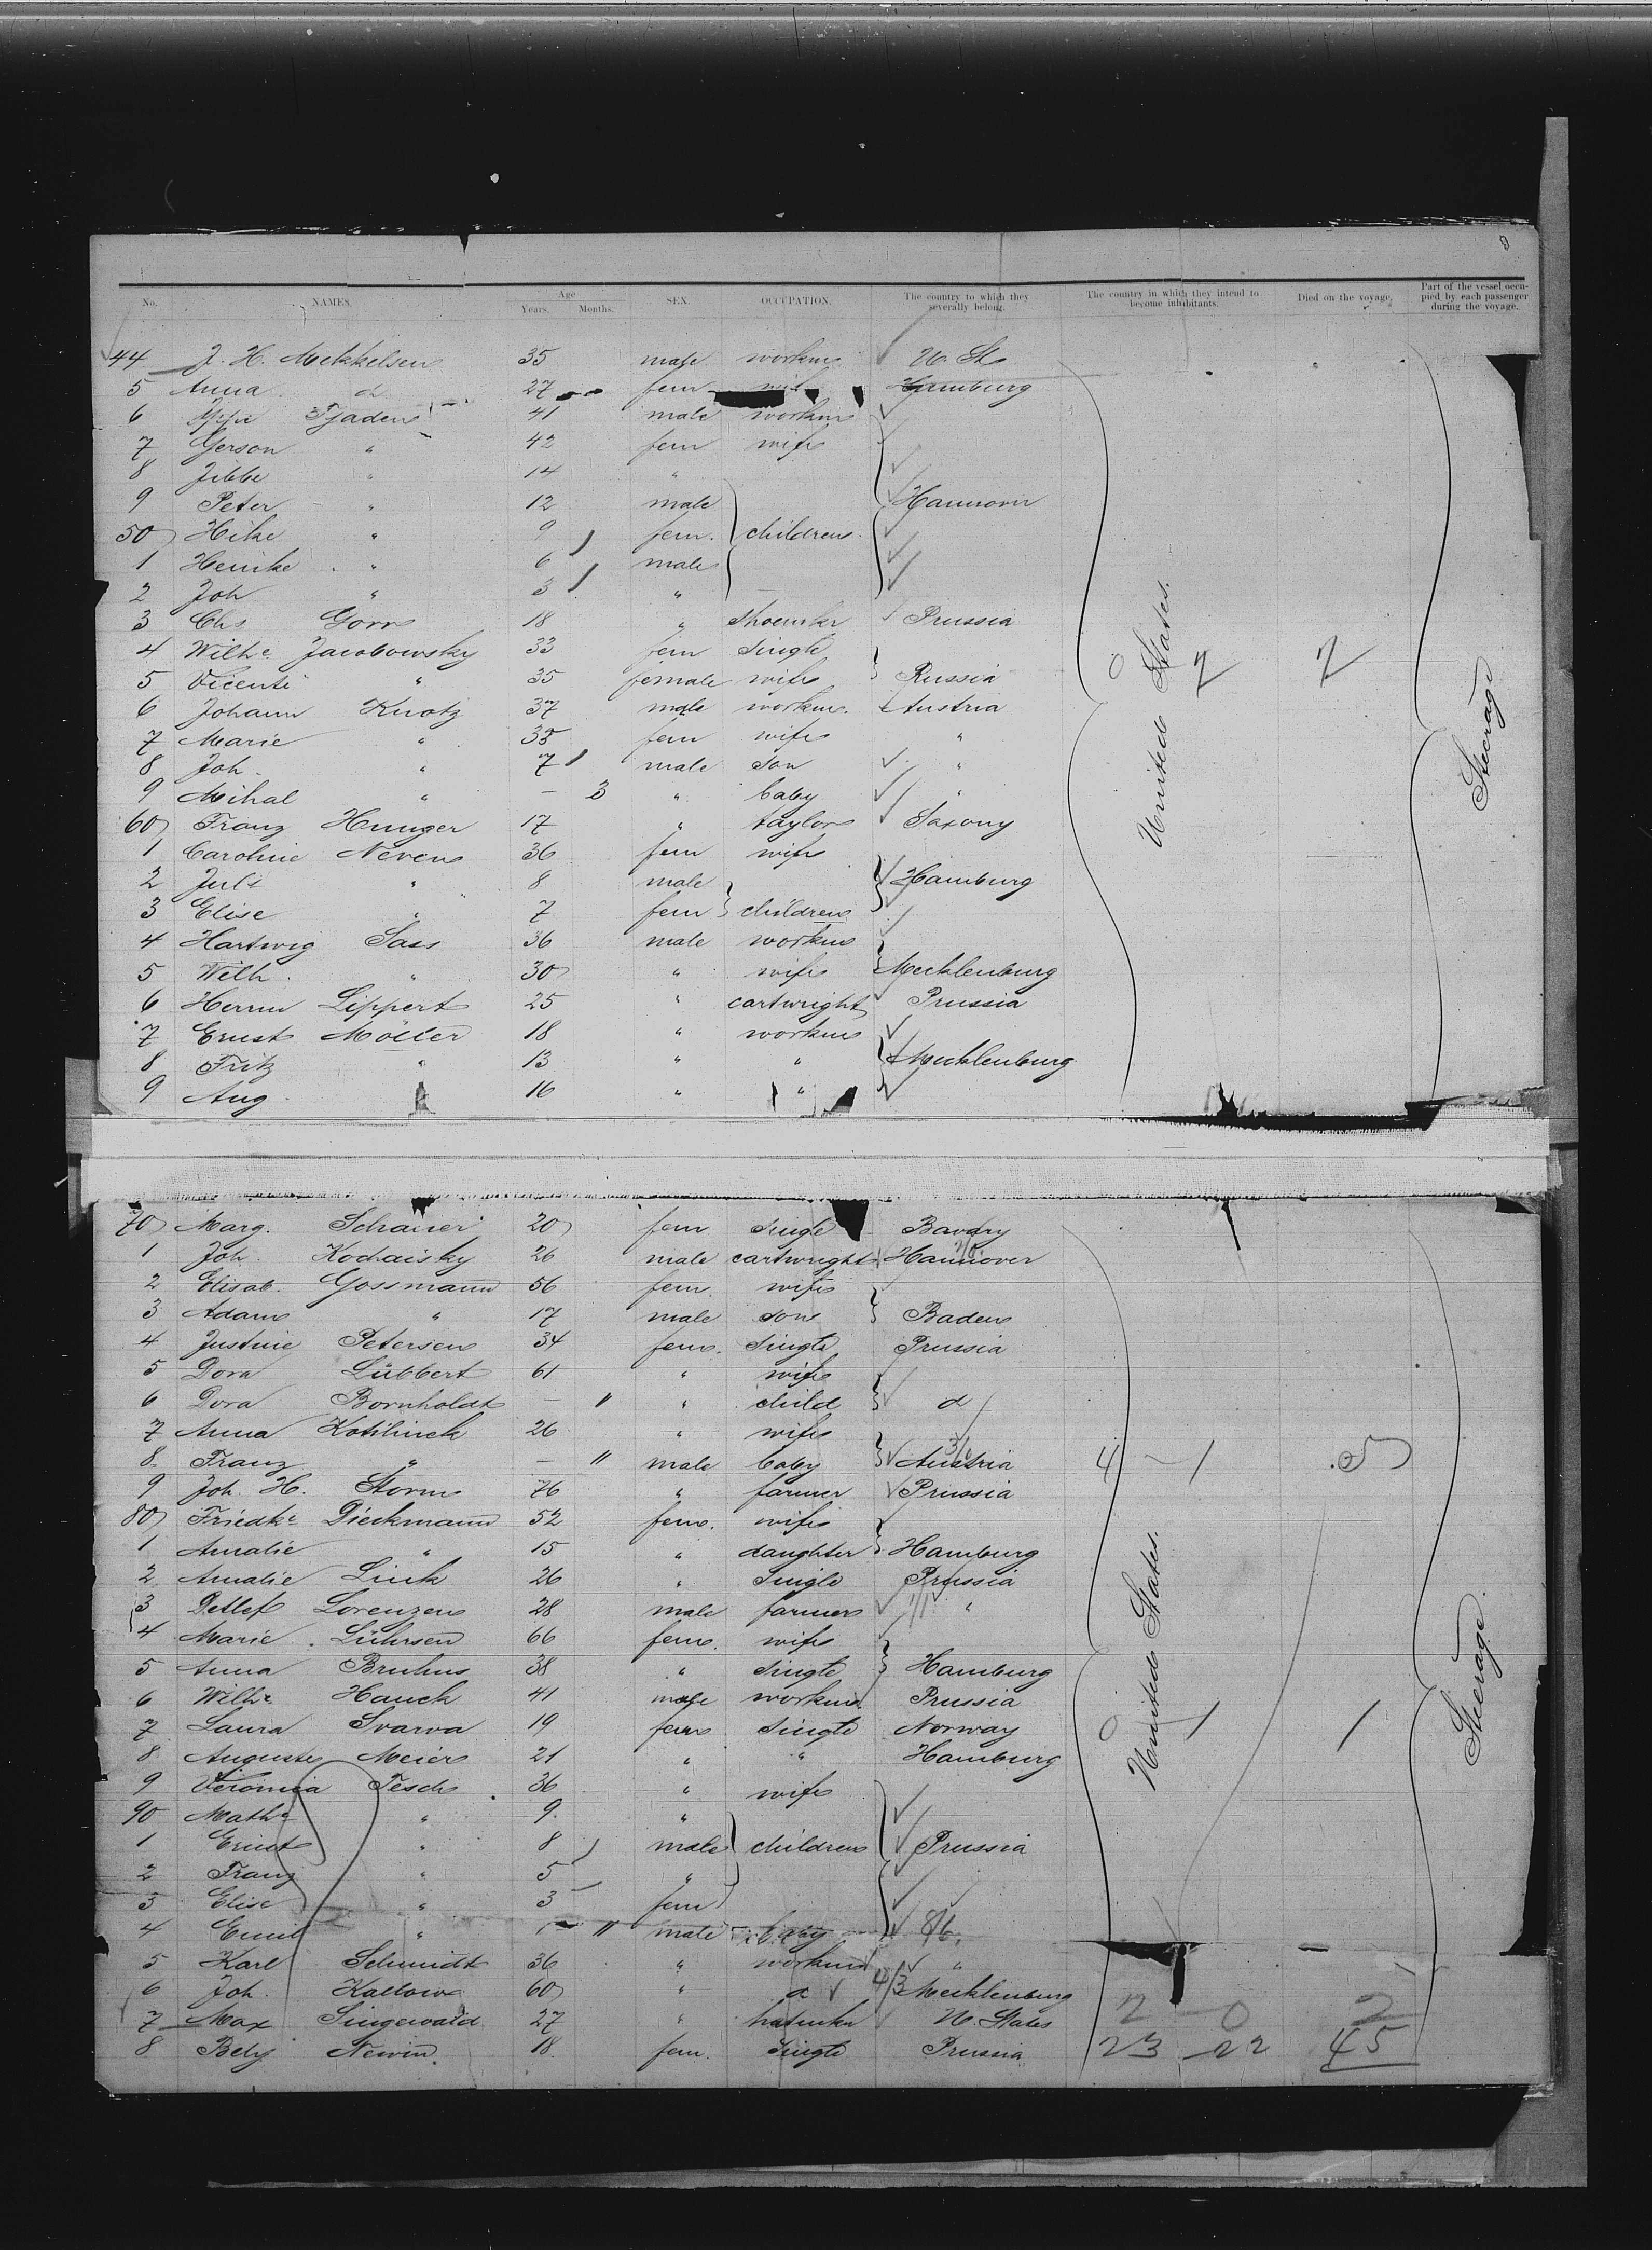 No. NAMES. Age Years. Months. SEX. OCCUPATION. The country to which they severally belong. The country in which they intend to become inhabitants. Died on the voyage. Part of the vessel occupied by each passenger during the voyage.
44 J. H. Mekkelsen 35 male workm U. St
5 Anna d 27 fem wife Hamburg
6 Tjaden 41 male workm
7 Gerson " 42 fem wife
8 Jibbe " 14 "
9 Peter " 12 male Hannover
50 Hike " 9 fem. children
1 Henrike " 6 male
2 Joh " 3 "
3 Chs Gorr 18 " shoemkr Prussia
4 Wilhe Jacobowsky 33 fem single
5 Vicenti " 35 female wife Russia
6 Johann Knotz 37 male workm. Austria
7 Marie " 35 fem wife "
8 Joh. " 7 male son "
9 Mihal " — 3 " baby "
60 Franz Hunger 17 " taylor Saxony
1 Caroline Neven 36 fem wife
2 Juls " 8 male Hamburg
3 Elise " 7 fem children
4 Hartwig Sass 36 male workm
5 Wilh. " 30 " wife Mecklenburg
6 Herrm Lippert 25 " cartwright Prussia
7 Ernst Möller 18 " workm
8 Fritz " 13 " " Mecklenburg
9 Aug. 16 " "
United States.
Steerage
70 Marg. Schauer 20 fem single Bavary
1 Joh. Kochaisky 26 male cartwright Hannover
2 Elisab. Gossmann 56 fem. wife
3 Adam " 17 male son Baden
4 Justine Petersen 34 fem. single Prussia
5 Dora Lübbert 61 " wife
6 Dora Bornholdt — " " child d
7 Anna Kotilinek 26 " wife
8 Franz " — " male baby Austria
9 Joh. H. Storm 76 " farmer Prussia
80 Friedke Dieckmann 52 fem. wife
1 Amalie " 15 " daughter Hamburg
2 Amalie Link 26 " single Prussia
3 Detlef Lorenzen 28 male farmer "
4 Marie Lührsen 66 fem. wife
5 Anna Bruhns 38 " single Hamburg
6 Wilhe Hauck 41 male workm. Prussia
7 Laura Svarva 19 fem single Norway
8 Auguste Meier 21 " " Hamburg
9 Veronica Tesch 36 " wife
90 Mathe " 9 "
1 Ernst " 8 male children Prussia
2 Franz " 5 "
3 Elise " 3 fem
4 Emil " — " male baby 8/6
5 Karl Schmidt 36 " workm "
6 Joh. Kallow 60 " d 4/3 Mecklenburg
7 Max Singewald 27 " U. States
8 Bely Newin. 18 fem. single Prussia
United States.
Steerage
2 0 2
23 22 45